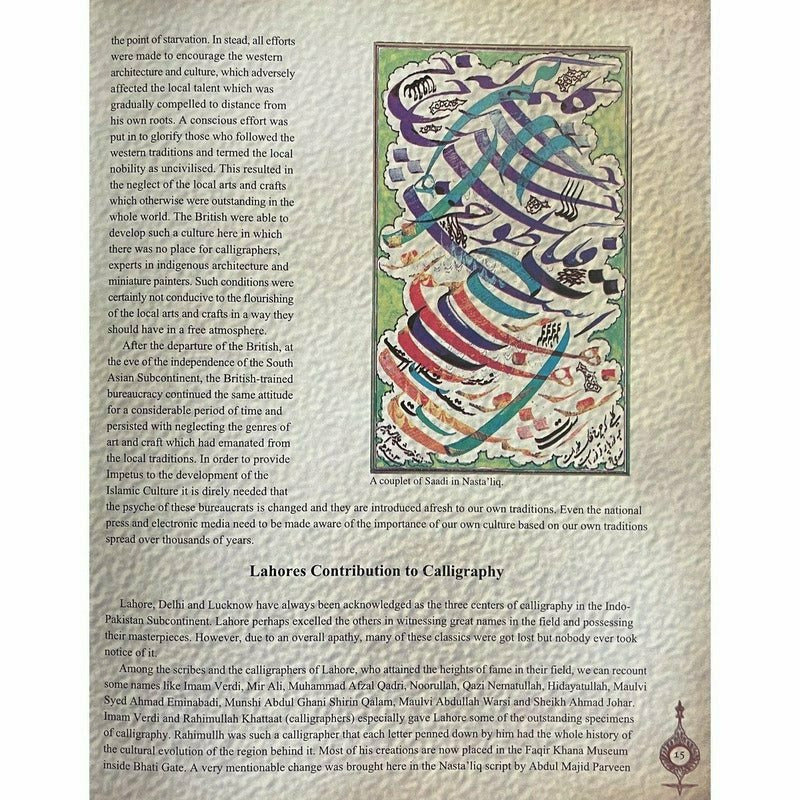 the point of starvation. In stead, all efforts
were made to encourage the western
architecture and culture, which adversely
affected the local talent which was
gradually compelled to distance from
his own roots. A conscious effort was
put in to glorify those who followed the
western traditions and termed the local
nobility as uncivilised. This resulted in
the neglect of the local arts and crafts
which otherwise were outstanding in the
whole world. The British were able to
develop such a culture here in which
there was no place for calligraphers,
experts in indigenous architecture and
miniature painters. Such conditions were
certainly not conducive to the flourishing
of the local arts and crafts in a way they
should have in a free atmosphere.
After the departure of the British, at
the eve of the independence of the South
Asian Subcontinent, the British-trained
bureaucracy continued the same attitude
for a considerable period of time and
persisted with neglecting the genres of
art and craft which had emanated from
the local traditions. In order to provide
Impetus to the development of the
Islamic Culture it is direly needed that
A couplet of Saadi in Nasta'liq.
the psyche of these bureaucrats is changed and they are introduced afresh to our own traditions. Even the national
press and electronic media need to be made aware of the importance of our own culture based on our own traditions
spread over thousands of years.
Lahores Contribution to Calligraphy
Lahore, Delhi and Lucknow have always been acknowledged as the three centers of calligraphy in the Indo-
Pakistan Subcontinent. Lahore perhaps excelled the others in witnessing great names in the field and possessing
their masterpieces. However, due to an overall apathy, many of these classics were got lost but nobody ever took
notice of it.
Among the scribes and the calligraphers of Lahore, who attained the heights of fame in their field, we can recount
some names like Imam Verdi, Mir Ali, Muhammad Afzal Qadri, Noorullah, Qazi Nematullah, Hidayatullah, Maulvi
Syed Ahmad Eminabadi, Munshi Abdul Ghani Shirin Qalam, Maulvi Abdullah Warsi and Sheikh Ahmad Johar.
Imam Verdi and Rahimullah Khattaat (calligraphers) especially gave Lahore some of the outstanding specimens
of calligraphy. Rahimullh was such a calligrapher that each letter penned down by him had the whole history of
the cultural evolution of the region behind it. Most of his creations are now placed in the Faqir Khana Museum
inside Bhati Gate. A very mentionable change was brought here in the Nasta'liq script by Abdul Majid Parveen
15